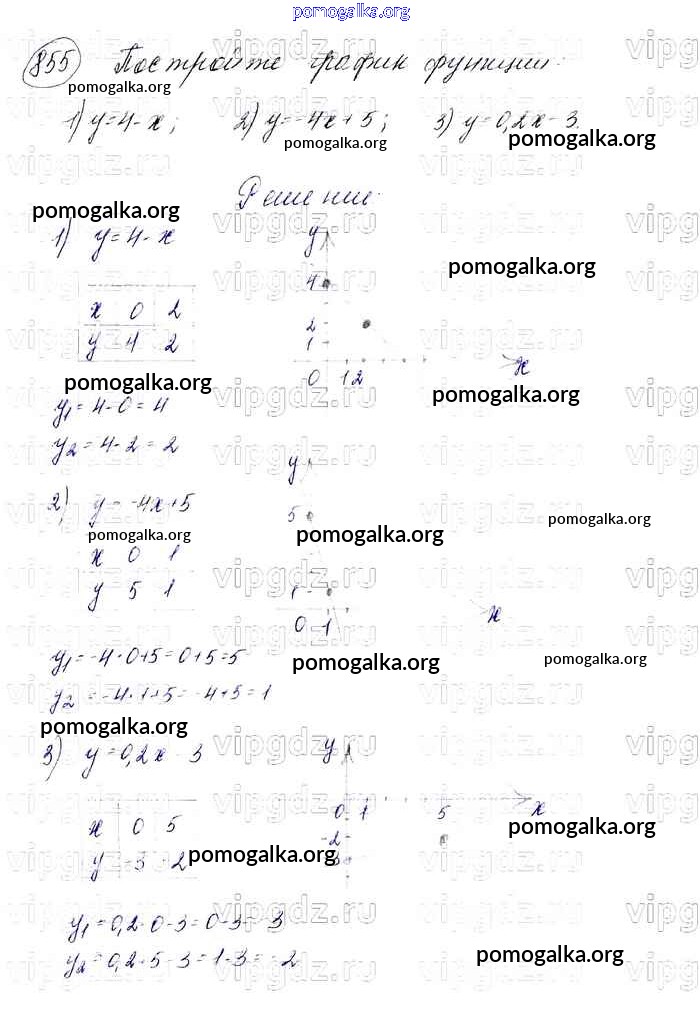 pomogalka.org
855 Постройте график функции:
pomogalka.org
1) y=4-x; 2) y=-4x+5; 3) y=0,2x-3.
pomogalka.org pomogalka.org
Решение.
pomogalka.org
1) y=4-x y
pomogalka.org
4
x 0 2
2
y 4 2
1
0 1 2 x
pomogalka.org pomogalka.org
y1=4-0=4
y2=4-2=2
y
2) y=-4x+5
5
pomogalka.org
pomogalka.org pomogalka.org
x 0 1
y 5 1
1
0 1 x
y1=-4·0+5=0+5=5
pomogalka.org pomogalka.org
y2=-4·1+5=-4+5=1
pomogalka.org
3) y=0,2x-3 y
0 1 5 x
x 0 5
pomogalka.org
-2
y -3 -2
-3
pomogalka.org
y1=0,2·0-3=0-3=-3
y2=0,2·5-3=1-3=-2
pomogalka.org
vipgdz.ru